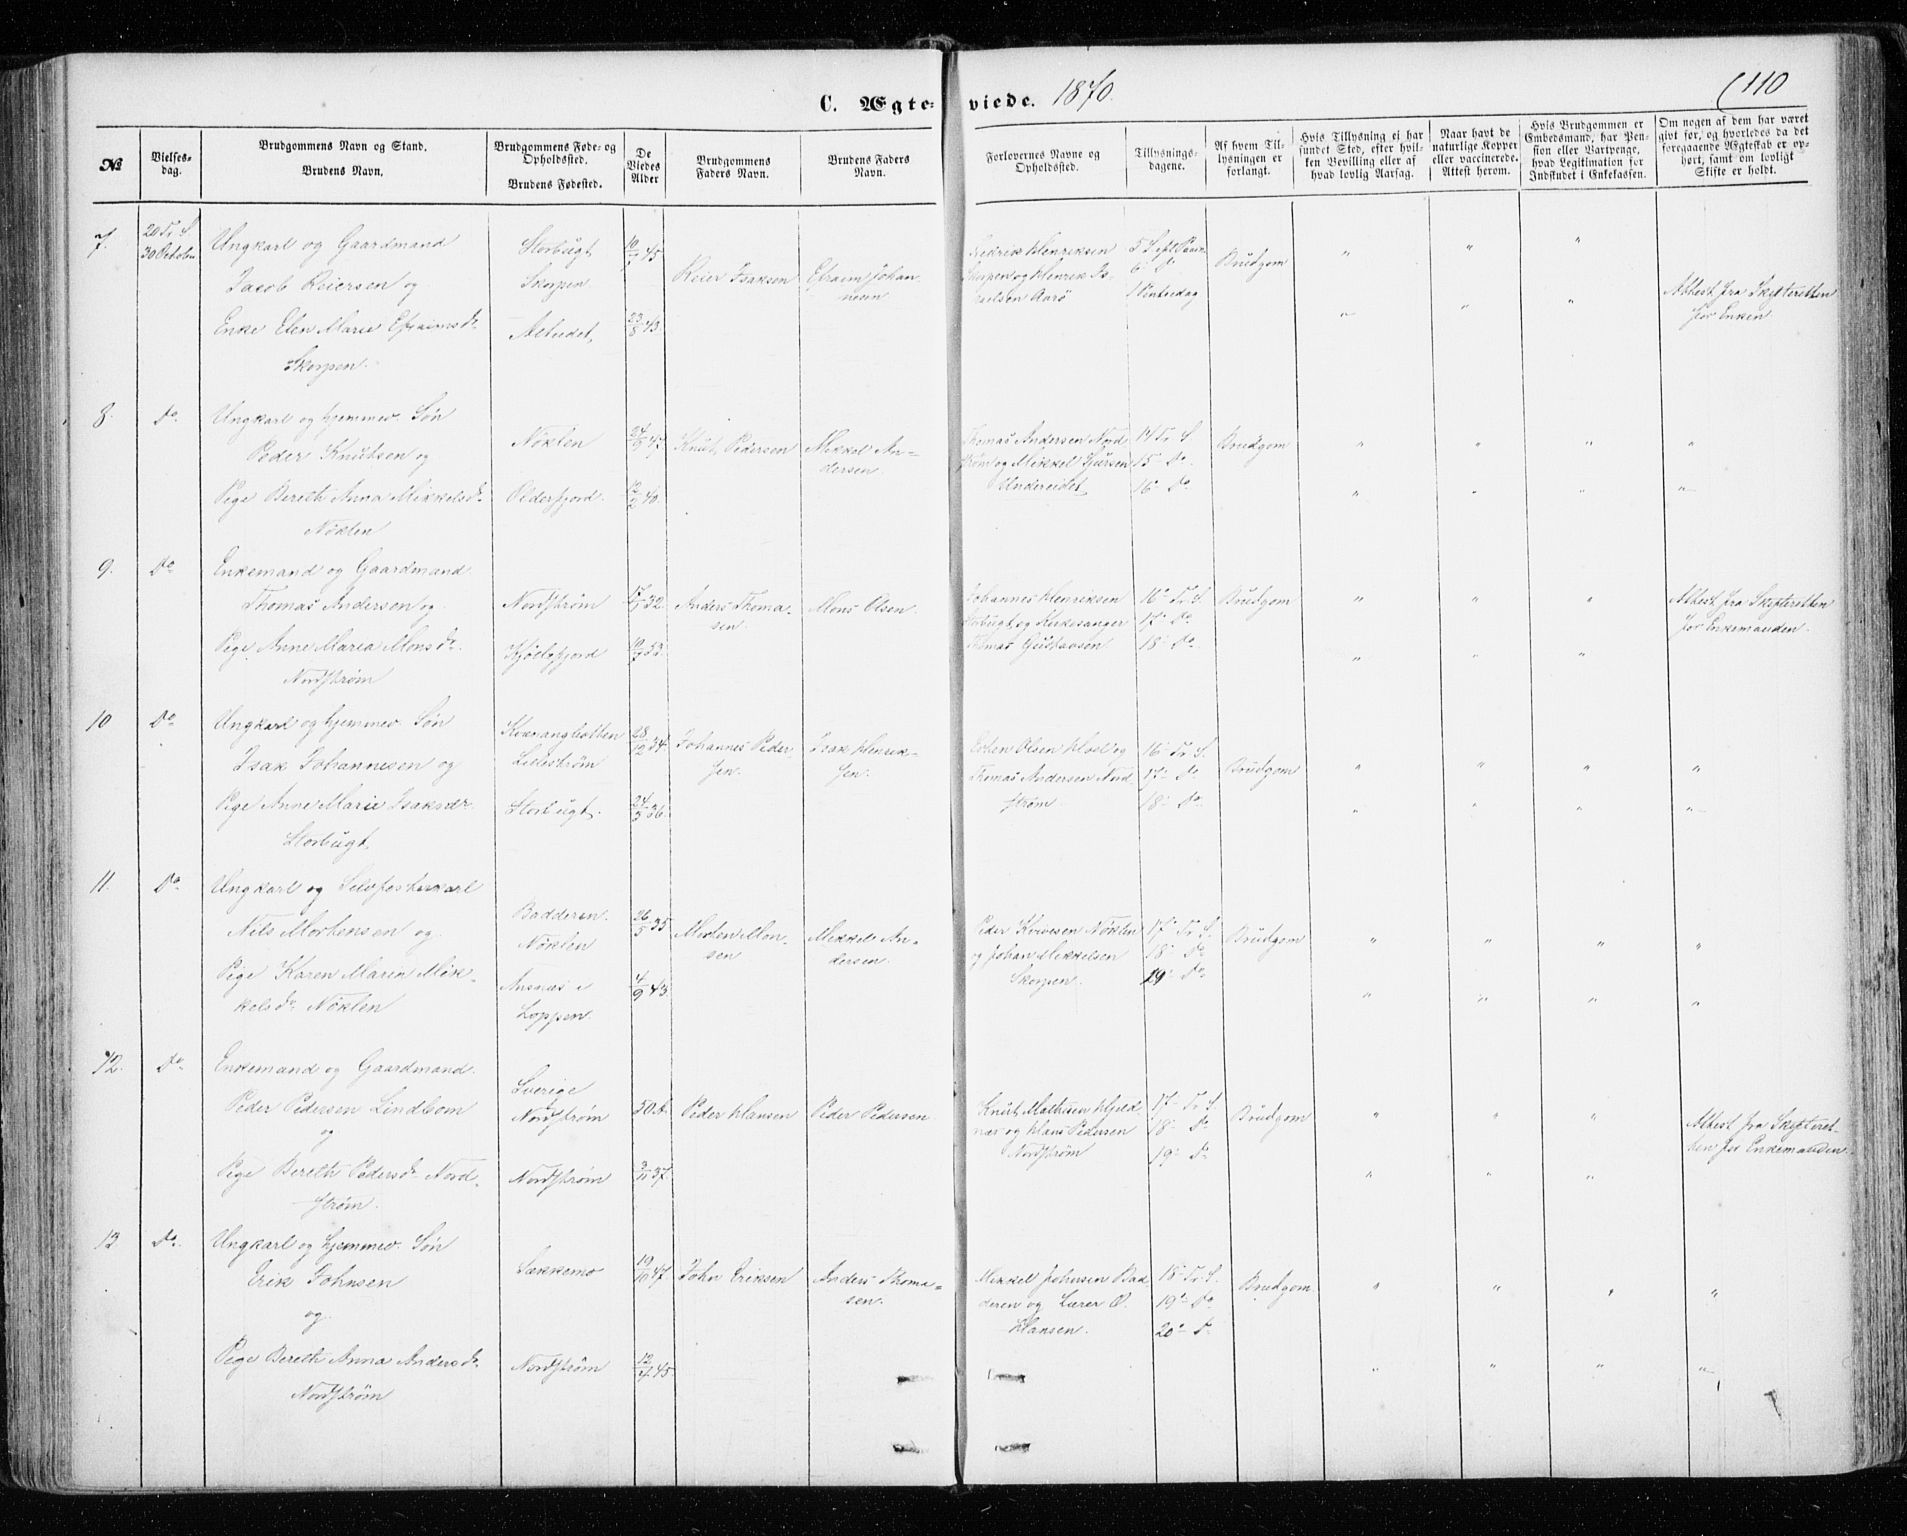 C. Ægteviede. 1870.
(110
№
Vielses-
dag.
Brudgommens Navn og Stand.
Brudens Navn.
Brudgommens Føde- og
Opholdssted.
Brudens Fødested.
De
Viedes
Alder
Brudgommens
Faders Navn.
Brudens Faders
Navn.
Forlovernes Navne og
Opholdssted.
Tillysnings-
dagene.
Af hvem Til-
lysningen er
forlangt.
Hvis Tillysning ej har
fundet Sted, efter hvil-
ken Bevilling eller af
hvad lovlig Aarsag.
Naar havt de
naturlige Kopper
eller vaccinerede.
Attest herom.
Hvis Brudgommen er
Embedsmand, har Pen-
sion eller Vartpenge,
hvad Legitimation for
Indskudet i Enkekassen.
Om nogen af dem har været
givt før, og hvorledes da det
foregaaende Ægteskab er op-
hørt, samt om lovligt
Skifte er holdt.
7.
20 Tr. S.
30 October
Ungkarl og Gaardmand
Jacob Reiersen og
Enke Elen Marie Efraimsdr.
Skorpen.
Storbugt
Skorpen
Alteidet,
45
23/8 43.
Reier Isaksen
Efraim Johan-
nesen
Fredrik Henriksen
Skorpen og Henrik Is-
raelsen Aarø
5 S. eft. Paas
6 Do
1 Pintsedag
Brudgom
Attest fra Skifteretten
for Enken
8.
Do
Ungkarl og hjemmev. Søn
Peder Knutsen og
Pige Bereth Anna Mikkelsdr.
Nøklen
Nøklen
Olderfjord.
24/9 47.
12/2 40.
Knut Pedersen
Mikkel An-
dersen.
Thomas Andersen Nord
strøm og Mikkel Iversen
Undereidet
14 Tr. S.
15 Do
16 Do
Brudgom
9.
Do
Enkemand og Gaardmand
Thomas Andersen og
Pige Anne Maria Monsdr.
Nordstrøm
Nordstrøm
Kjøllefjord
32.
10/7 33.
Anders Thoma-
sen.
Mons Olsen
Johannes Henriksen
Storbugt og Kirkesanger
Thomas Gustavsen
16 Tr. S.
17 Do
18 Do
Brudgom
Attest fra Skifteretten
for Enkemanden.
10
Do
Ungkarl og hjemmev. Søn
Isak Johannesen og
Pige Anne Marie Isaksdr.
Storbugt
Kvænangbotten
Lillestrøm
Storbugt.
28/12 34.
24/3 36.
Johannes Peder-
sen.
Isak Henrik-
sen.
Olsen og
Thomas Andersen Nord
strøm.
16 Tr. S.
17 Do
18 Do
Brudgom
11.
Do
Ungkarl og Selvfosterkarl
Nils Mortensen og
Pige Karen Maria Mik-
kelsdr. Nøklen
Badderen.
Nøklen
Ansnæs i
Loppen.
26/5 35
4/9 43.
Morten Mon-
sen
Mikkel An-
dersen.
Peder Nøklen
og Johan Mikkelsen
Skorpen.
17 Tr. S.
18 Do
19 Do
Brudgom
12.
Do
Enkemand og Gaardmand
Peder Pedersen Lindbom
og
Pige Bereth Pedersdr. Nord-
strøm.
Sverige
Nordstrøm
Nordstrøm
50 A.
3/11 37.
Peder Hansen
Peder Pedersen
Knut Mathisen
og Hans Pedersen
Nordstrøm
17 Tr. S.
18 Do
19 Do
Brudgom
Attest fra Skifteret-
ten for Enkemanden.
13
Do.
Ungkarl og hjemmev. Søn
Erik Johnsen
og
Pige Bereth Anna Andersdr.
Nordstrøm
Sækkemo
Nordstrøm
19/10 47.
45.
John Eriksen
Anders Thoma-
sen.
Mikkel Johnsen Bad
deren og Lærer O.
Hansen.
18 Tr. S.
19 Do
20 Do
Brudgom.